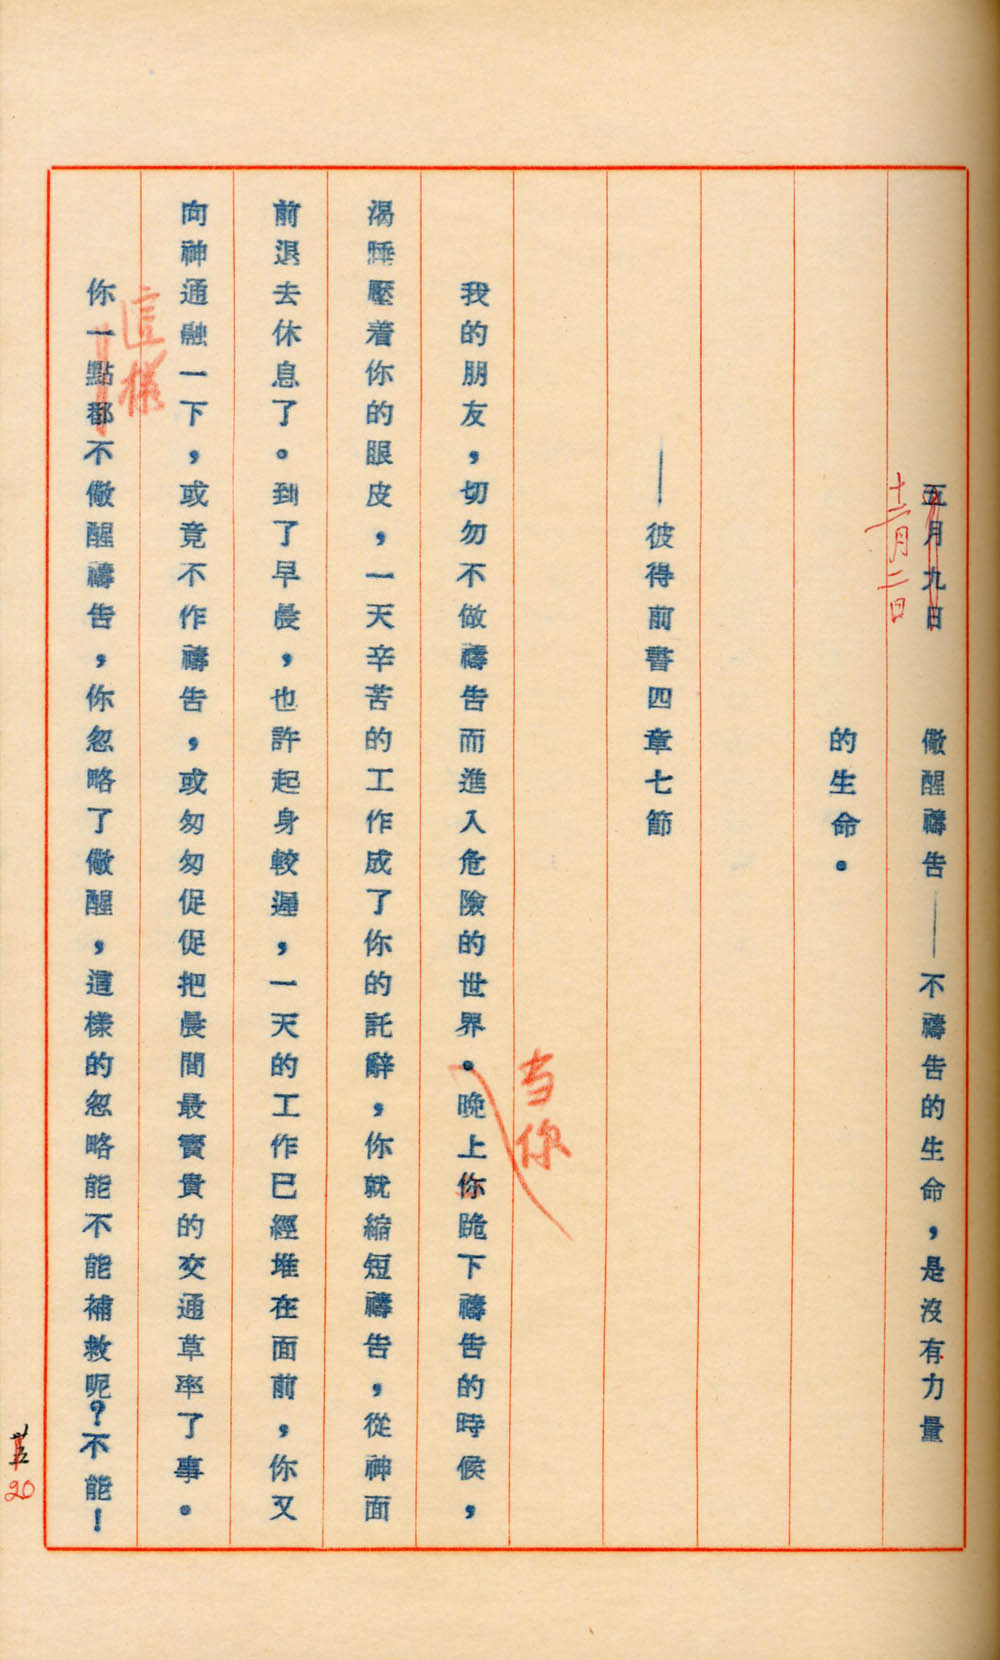 五月九日　儆醒禱告——不禱告的生命，是沒有力量
十二月二日
的生命。
——彼得前書四章七節
当你
我的朋友，切勿不做禱告而進入危險的世界。晚上你跪下禱告的時候，
渴睡壓着你的眼皮，一天辛苦的工作成了你的託辭，你就縮短禱告，從神面
前退去休息了。到了早晨，也許起身較遲，一天的工作已經堆在面前，你又
向神通融一下，或竟不作禱告，或匆匆促促把晨間最寶貴的交通草率了事。
這樣
你一點都不儆醒禱告，你忽略了儆醒，這樣的忽略能不能補救呢？不能！
20